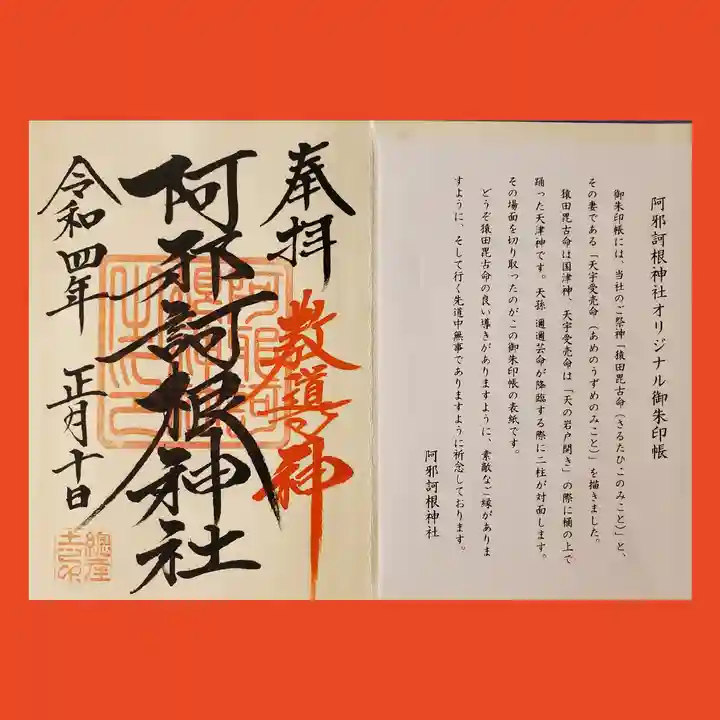 阿邪訶根神社オリジナル御朱印帳
御朱印帳には、当社のご祭神「猿田毘古命（さるたひこのみこと）」と、
その妻である「天宇受売命（あめのうずめのみこと）」を描きました。
猿田毘古命は国津神、天宇受売命は「天の岩戸開き」の際に桶の上で
踊った天津神です。天孫 邇邇芸命が降臨する際に二柱が対面します。
その場面を切り取ったのがこの御朱印帳の表紙です。
どうぞ猿田毘古命の良い導きがありますように、素敵なご縁がありま
すように、そして行く先道中無事でありますように祈念しております。
阿邪訶根神社
奉拝
教導の神
阿邪訶根神社
令和四年 正月十日